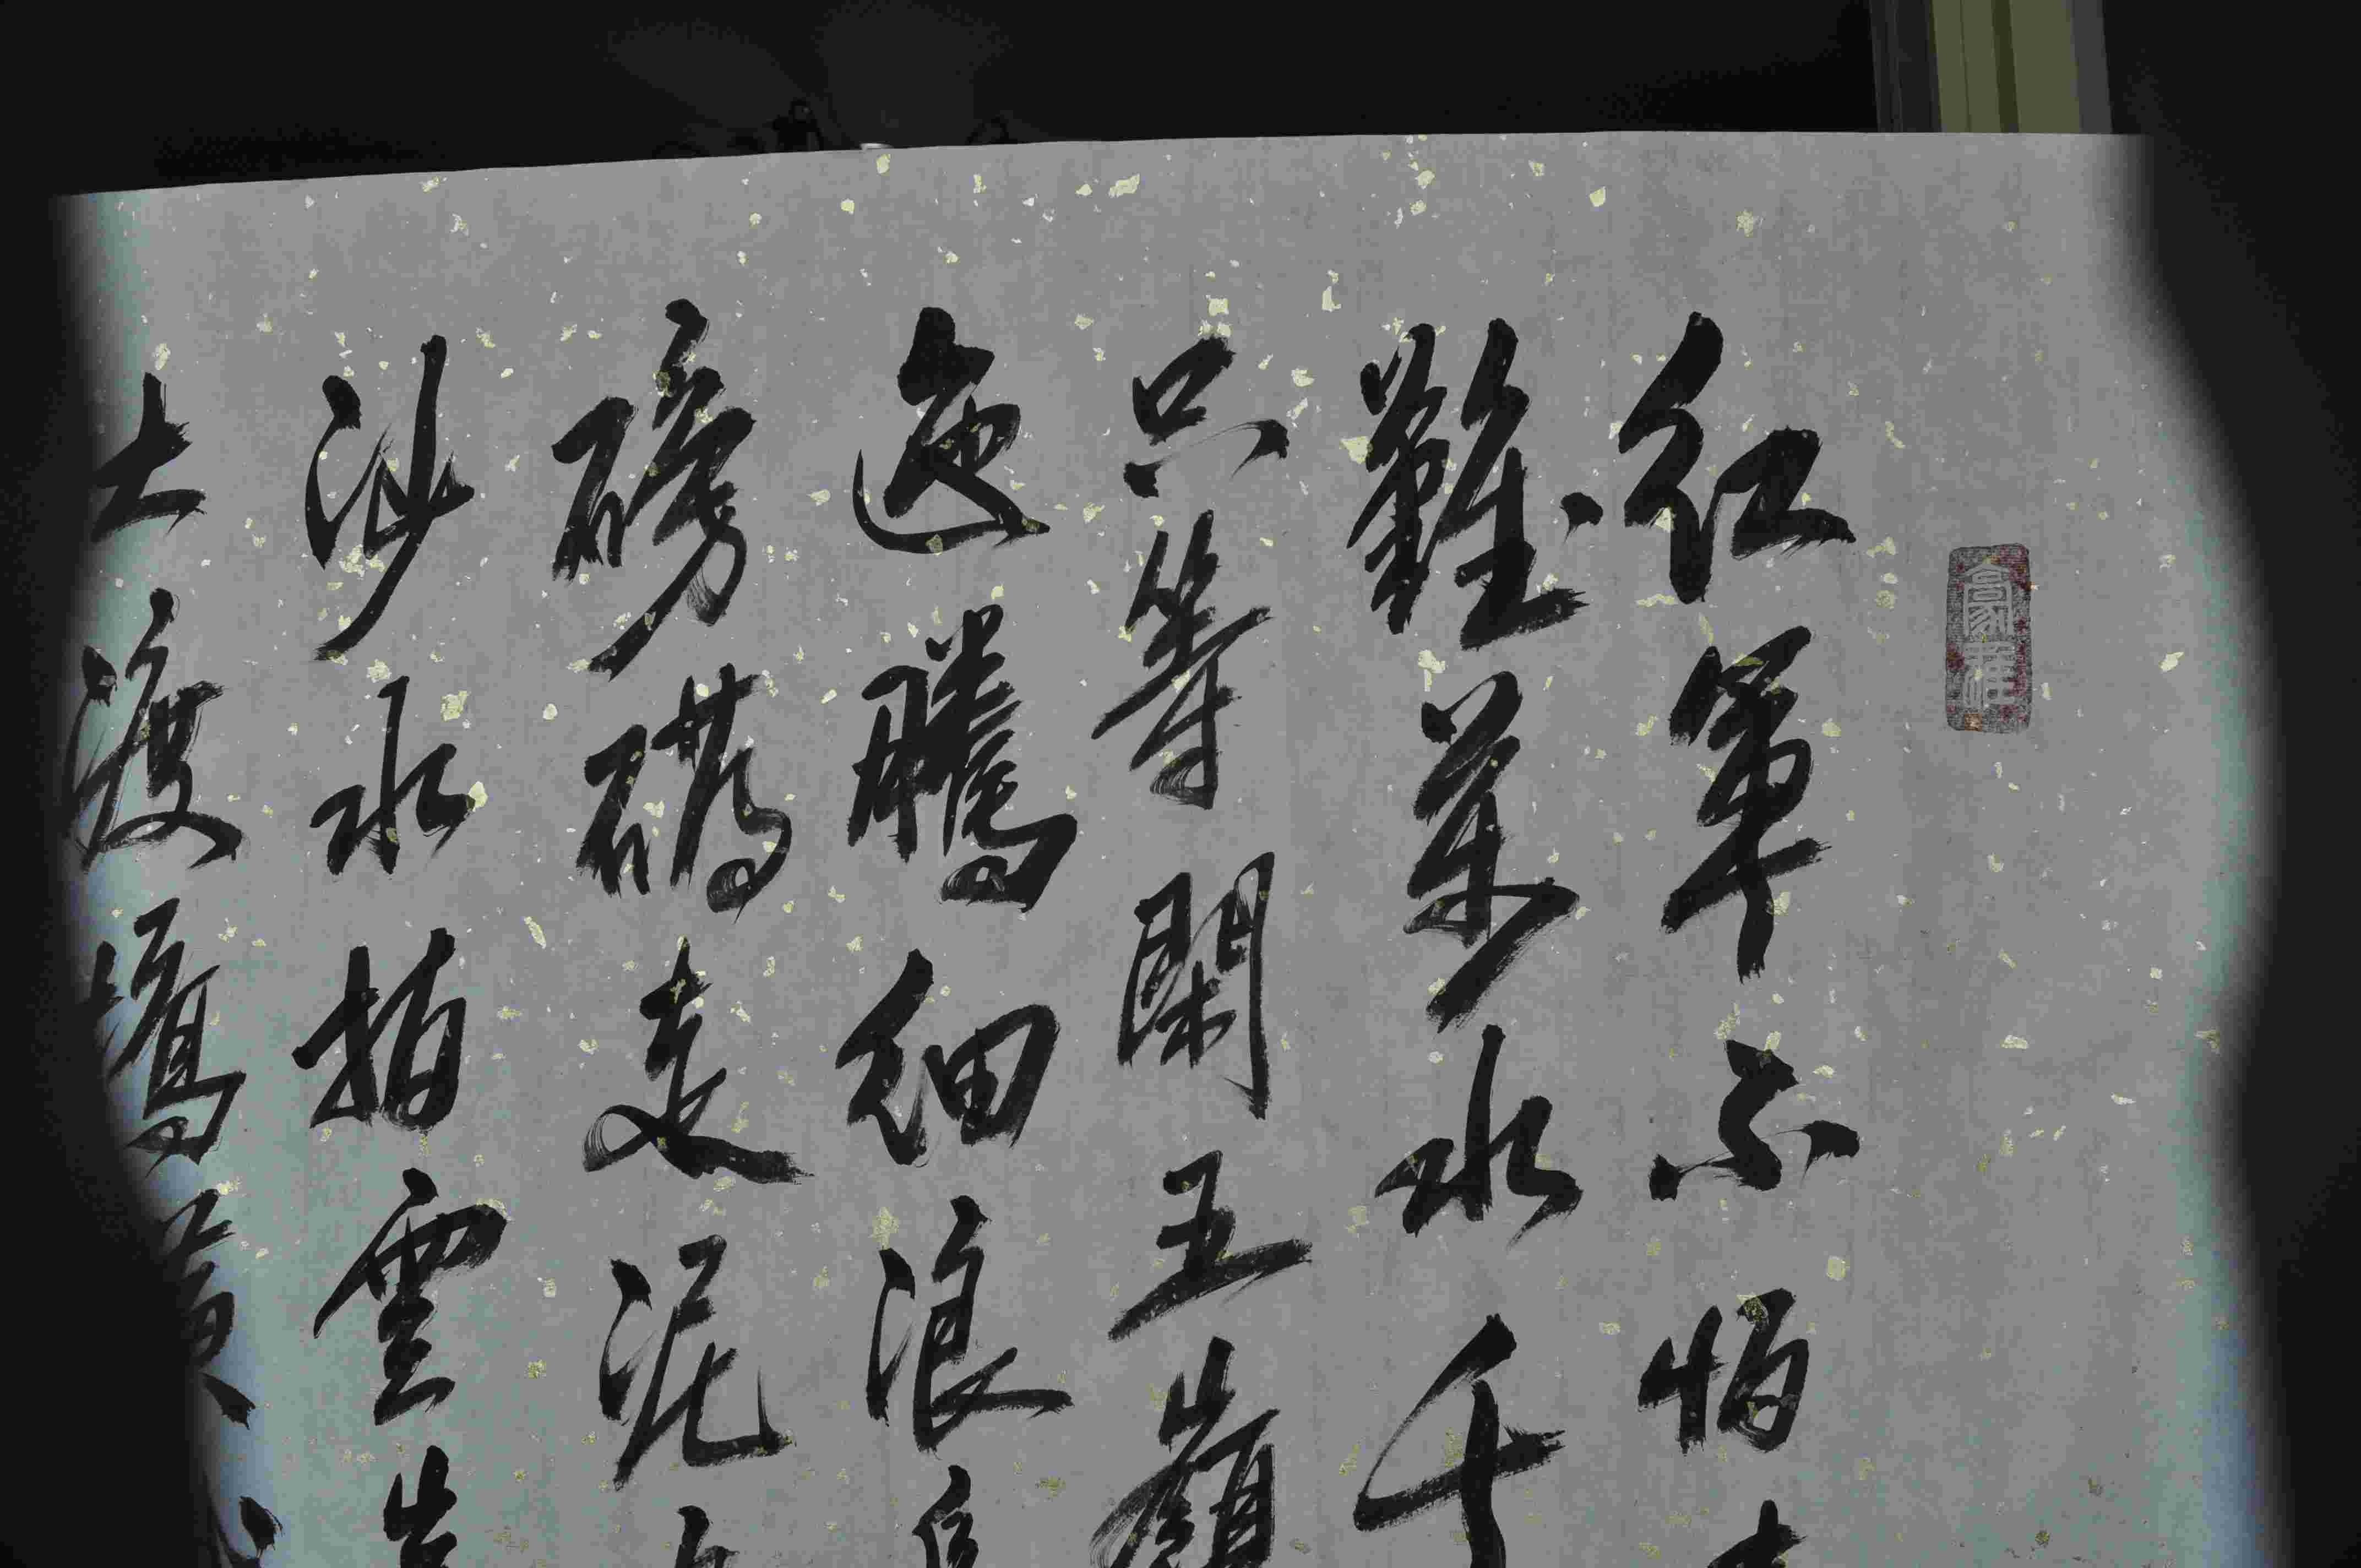 紅軍不怕
難萬水千
只等閑五嶺
迤騰細浪
磅礴走泥
沙水拍雲
大渡橋橫